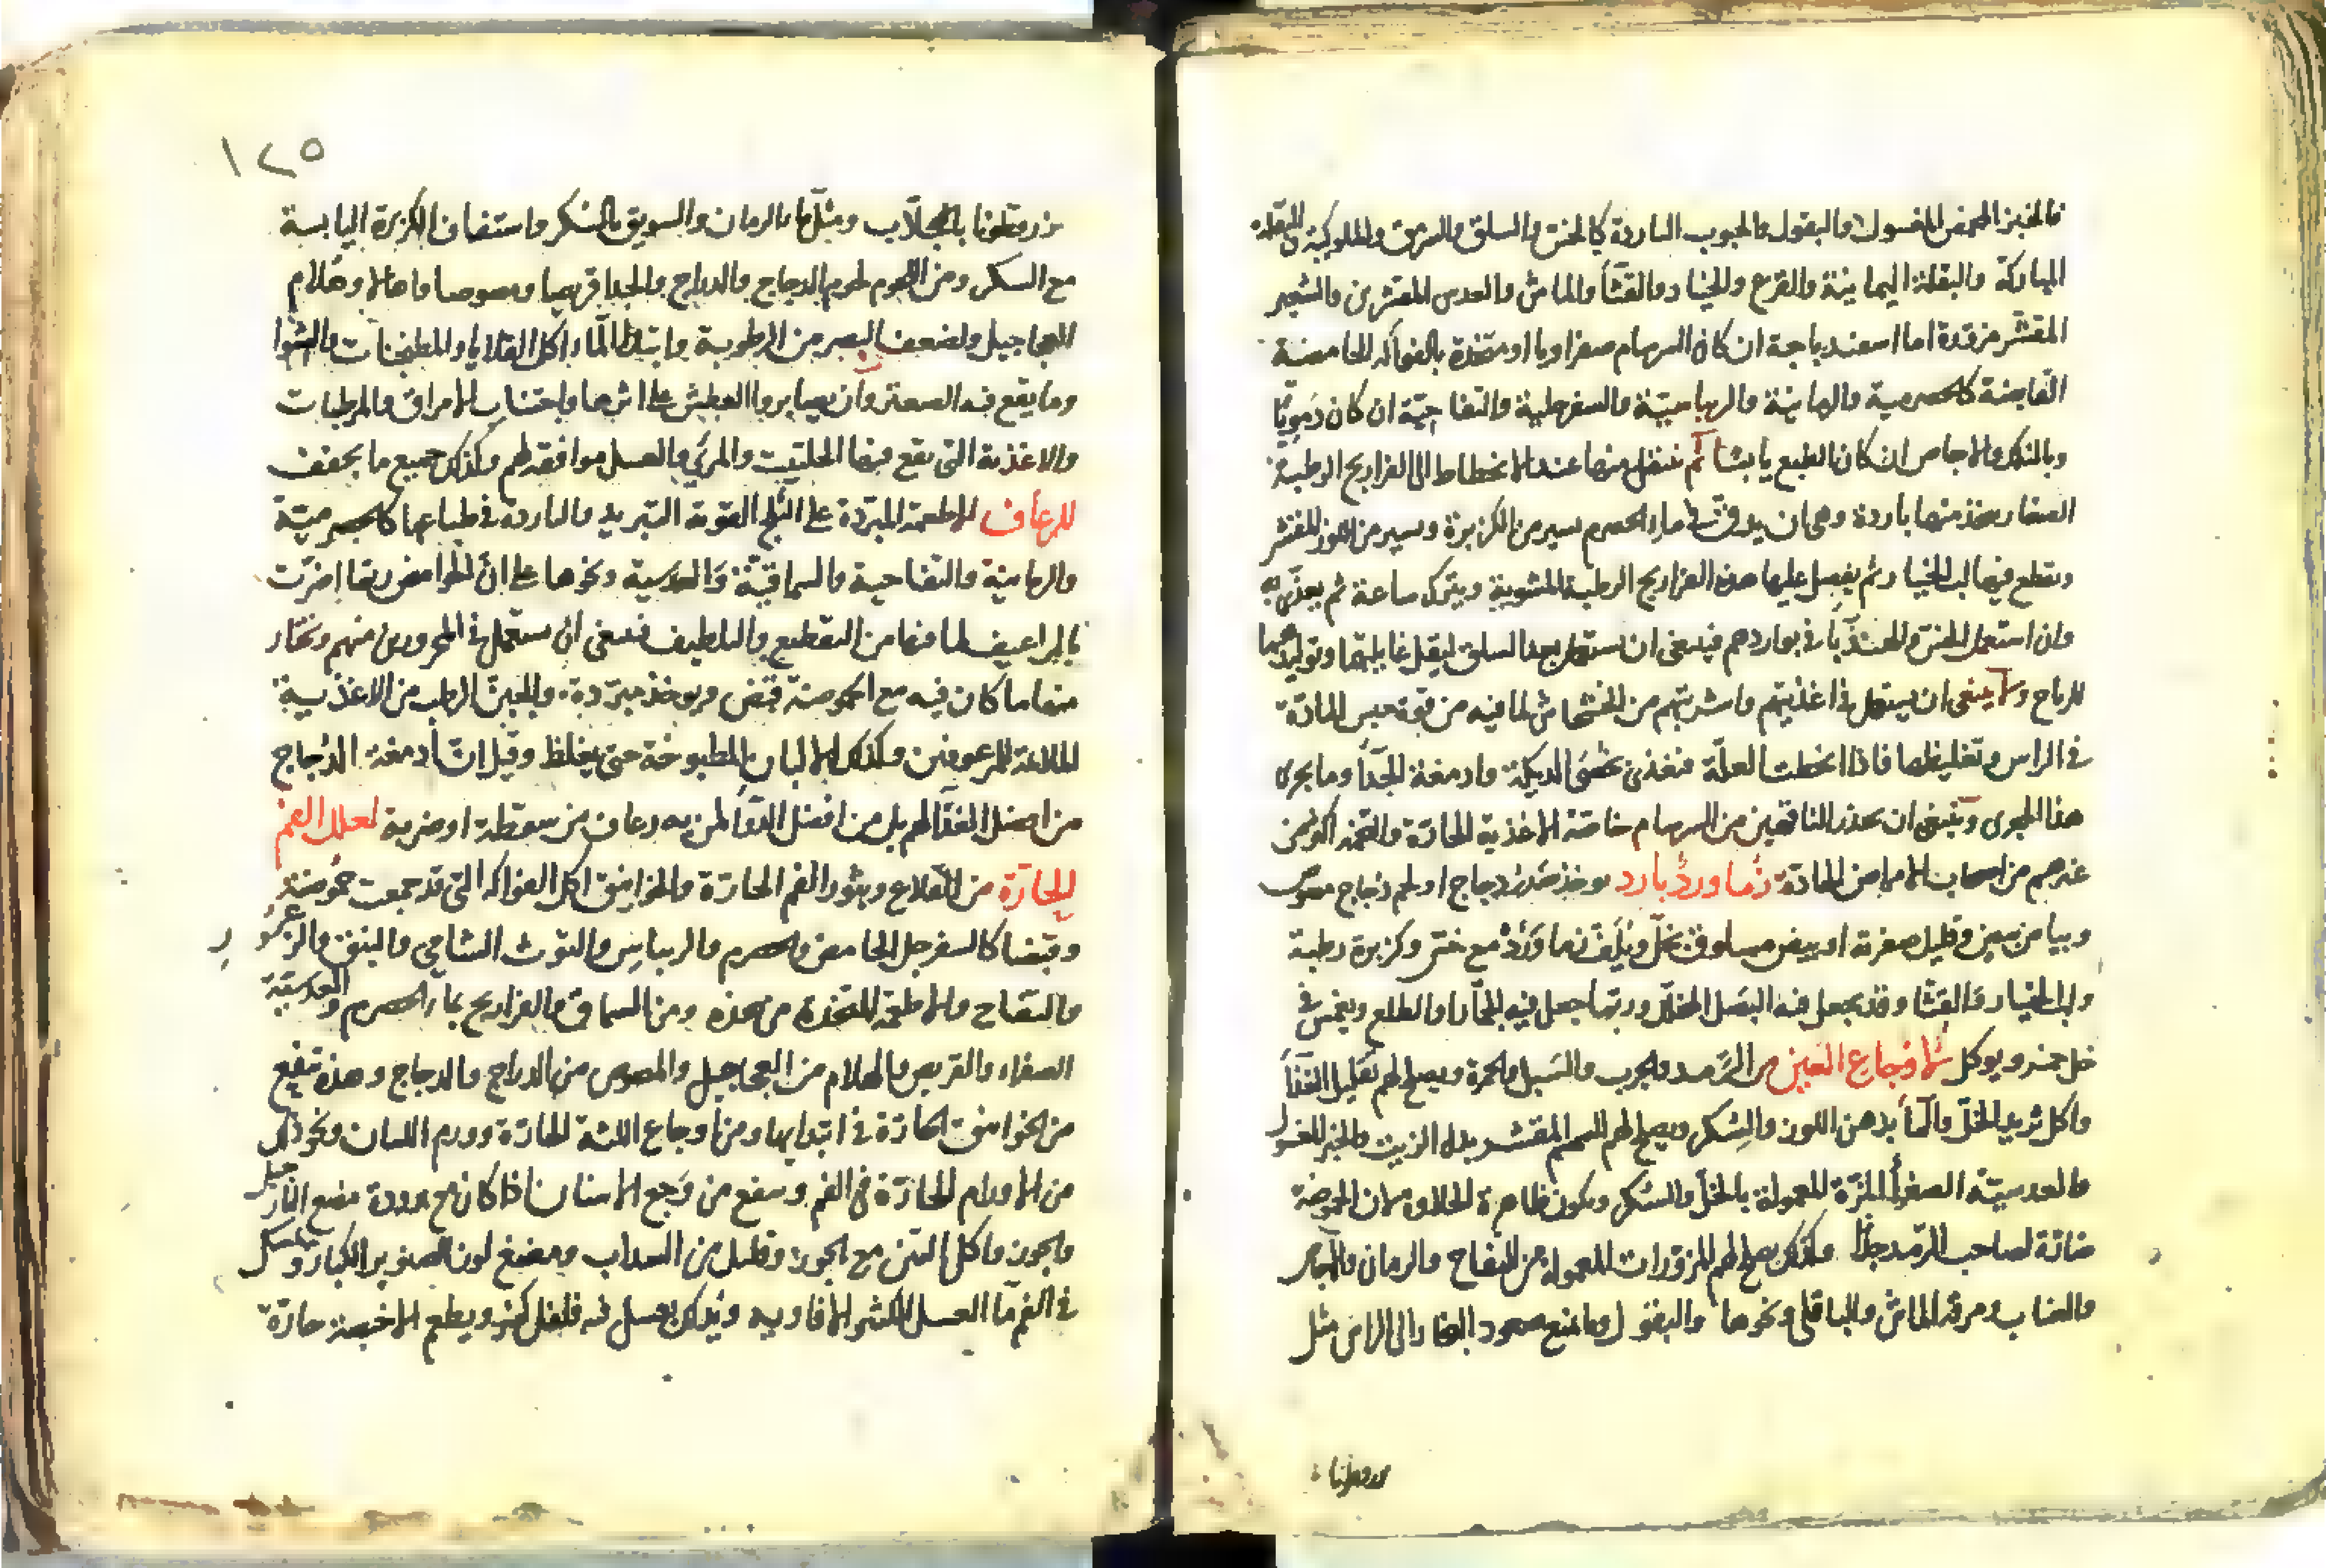 فالخبز المحمض المغسول والبقول والحبوب الباردة كالخس والسلق والسرمق والملوكية والبقلة
المباركة والبقلة اليمانية والقرع والخيار والقثا والماش والعدس المقشرين والشعير
المقشر مزقدة اما اسفيدباجة ان كان السرسام صفراويا او متخذة بالفواكه الحامضة
القابضة كالحصرمية والرمانية والريباسية والسفرجلية والتفاحية ان كان دمويا
وبالتمر والاجاص ان كان الطبع يابسا ثم ينتقل منها عند الانحطاط الى الفراريج الرطبة
الصغار يتخذ منها باردة وهي ان يدق في ماء الحصرم يسير من الكزبرة ويسير من اللوز المقشر
ويقطع فيها لب الخيار ثم يفصل عليها هذه الفراريج الرطبة المشوية ويترك ساعة ثم يغذى به
وان استعمل الخس والهندبا في بواردهم فينبغي ان يستعمل بعد السلق ليقل غايلتها وتوليدهما
للرياح ولا ينبغي ان يستعمل في اغذيتهم واشربتهم من الخشخاش لما فيه من قوة حبس المادة
في الراس وتغليظها فاذا انحطت العلة فيغذى بخصى الديكة وادمغة الجدا وما يجري
هذا المجرى وينبغي ان يحذر الناقهين من السرسام خاصة الاغذية الحارة والتخم اكثر من
غيرهم من اصحاب الامراض الحادة زماورد بارد يوخذ صدر دجاج او لحم دجاج مصوص
وبياض بيض وقليل صفرته او بيض مسلوق بخل ويلف زماورد مع خس وكزبرة رطبة
ولب الخيار والقثا وقد يجعل فيه البصل المخلل وربما جعل فيه الجمار والطلع ويغمس في
خل خمر ويوكل لاوجاع العين من الرمد والجرب والسبل والحمرة ويصلح لهم تقليل الغذا
واكل ثريد الخل والماء بدهن اللوز والسكر ويصلح لهم السمسم المقشر بدل الزيت والخبز المغسول
والعدسية الصفرا المزة المعمولة بالخل والسكر ويكون ظاهرة الحلاوة لان الحموضة
ضارة لصاحب الرمد جدا وكذلك يصلح لهم المزورات المعمولة من التفاح والرمان والاجاص
والعناب ومرقة الماش والباقلي ونحوها والبقول وما يمنع صعود البخار الى الراس مثل
١٢٥
بزرقطونا بالجلاب ومثل ماء الرمان والسويق بالسكر واستفاف الكزبرة اليابسة
مع السكر ومن اللحوم لحوم الدجاج والدراج والجدا قريصا ومصوصا واهلا وهلام
العجاجيل ولضعف البصر من الرطوبة وابتدا الماء اكل القلايا والمطجنات والشوا
وما يقع فيه الصعتر وان يصابروا العطش على اثرها واجتناب الامراق والمرطبات
والاغذية التي يقع فيها الحلتيت والمري والعسل موافقة لهم وكذلك جميع ما يجفف
للرعاف الاطعمة المبردة على الثلج القوية التبريد والباردة في طباعها كالحصرمية
والرمانية والتفاحية والسماقية والعدسية ونحوها على ان الحوامض ربما اضرت
بالمراعيف لما فيها من التقطيع والتلطيف فينبغي ان يستعمل في المحرورين منهم ويختار
منها ما كان فيه مع الحموضة قبض ويوخذ مبردة والجبن الرطب من الاغذية
الملائمة للمرعوفين وكذلك الالبان المطبوخة حتى يغلظ وقيل ان ادمغة الدجاج
من افضل الغذا لهم بل من افضل الدوا لمن به رعاف من سقطة او ضربة لعلل الفم
الحارة من القلاع وبثور الفم الحارة والخوانيق اكل الفواكه التي قد جمعت حموضة
وقبضا كالسفرجل الحامض والحصرم والريباس والتوث الشامي والنبق والزعرور
والتفاح والاطعمة المتخذة من هذه ومن السماق والفراريج بماء الحصرم والعدسية
الصفراء والقريص والهلام من العجاجيل والمصوص من الدراج والدجاج وهذه تنفع
من الخوانيق الحارة في ابتدايها ومن اوجاع اللثة الحارة وورم اللسان ونحو ذلك
من الاورام الحارة في الفم وينفع من وجع الاسنان اذا كان مع برودة مضغ النارجيل
والجوز واكل التين مع الجوز وقليل من السداب ويمضغ لوز الصنوبر الكبار ويمسك
في الفم ماء العسل الكثير الافاويه ويدلك بعسل فيه فلفل كثير ويطعم الاخبصة حارة